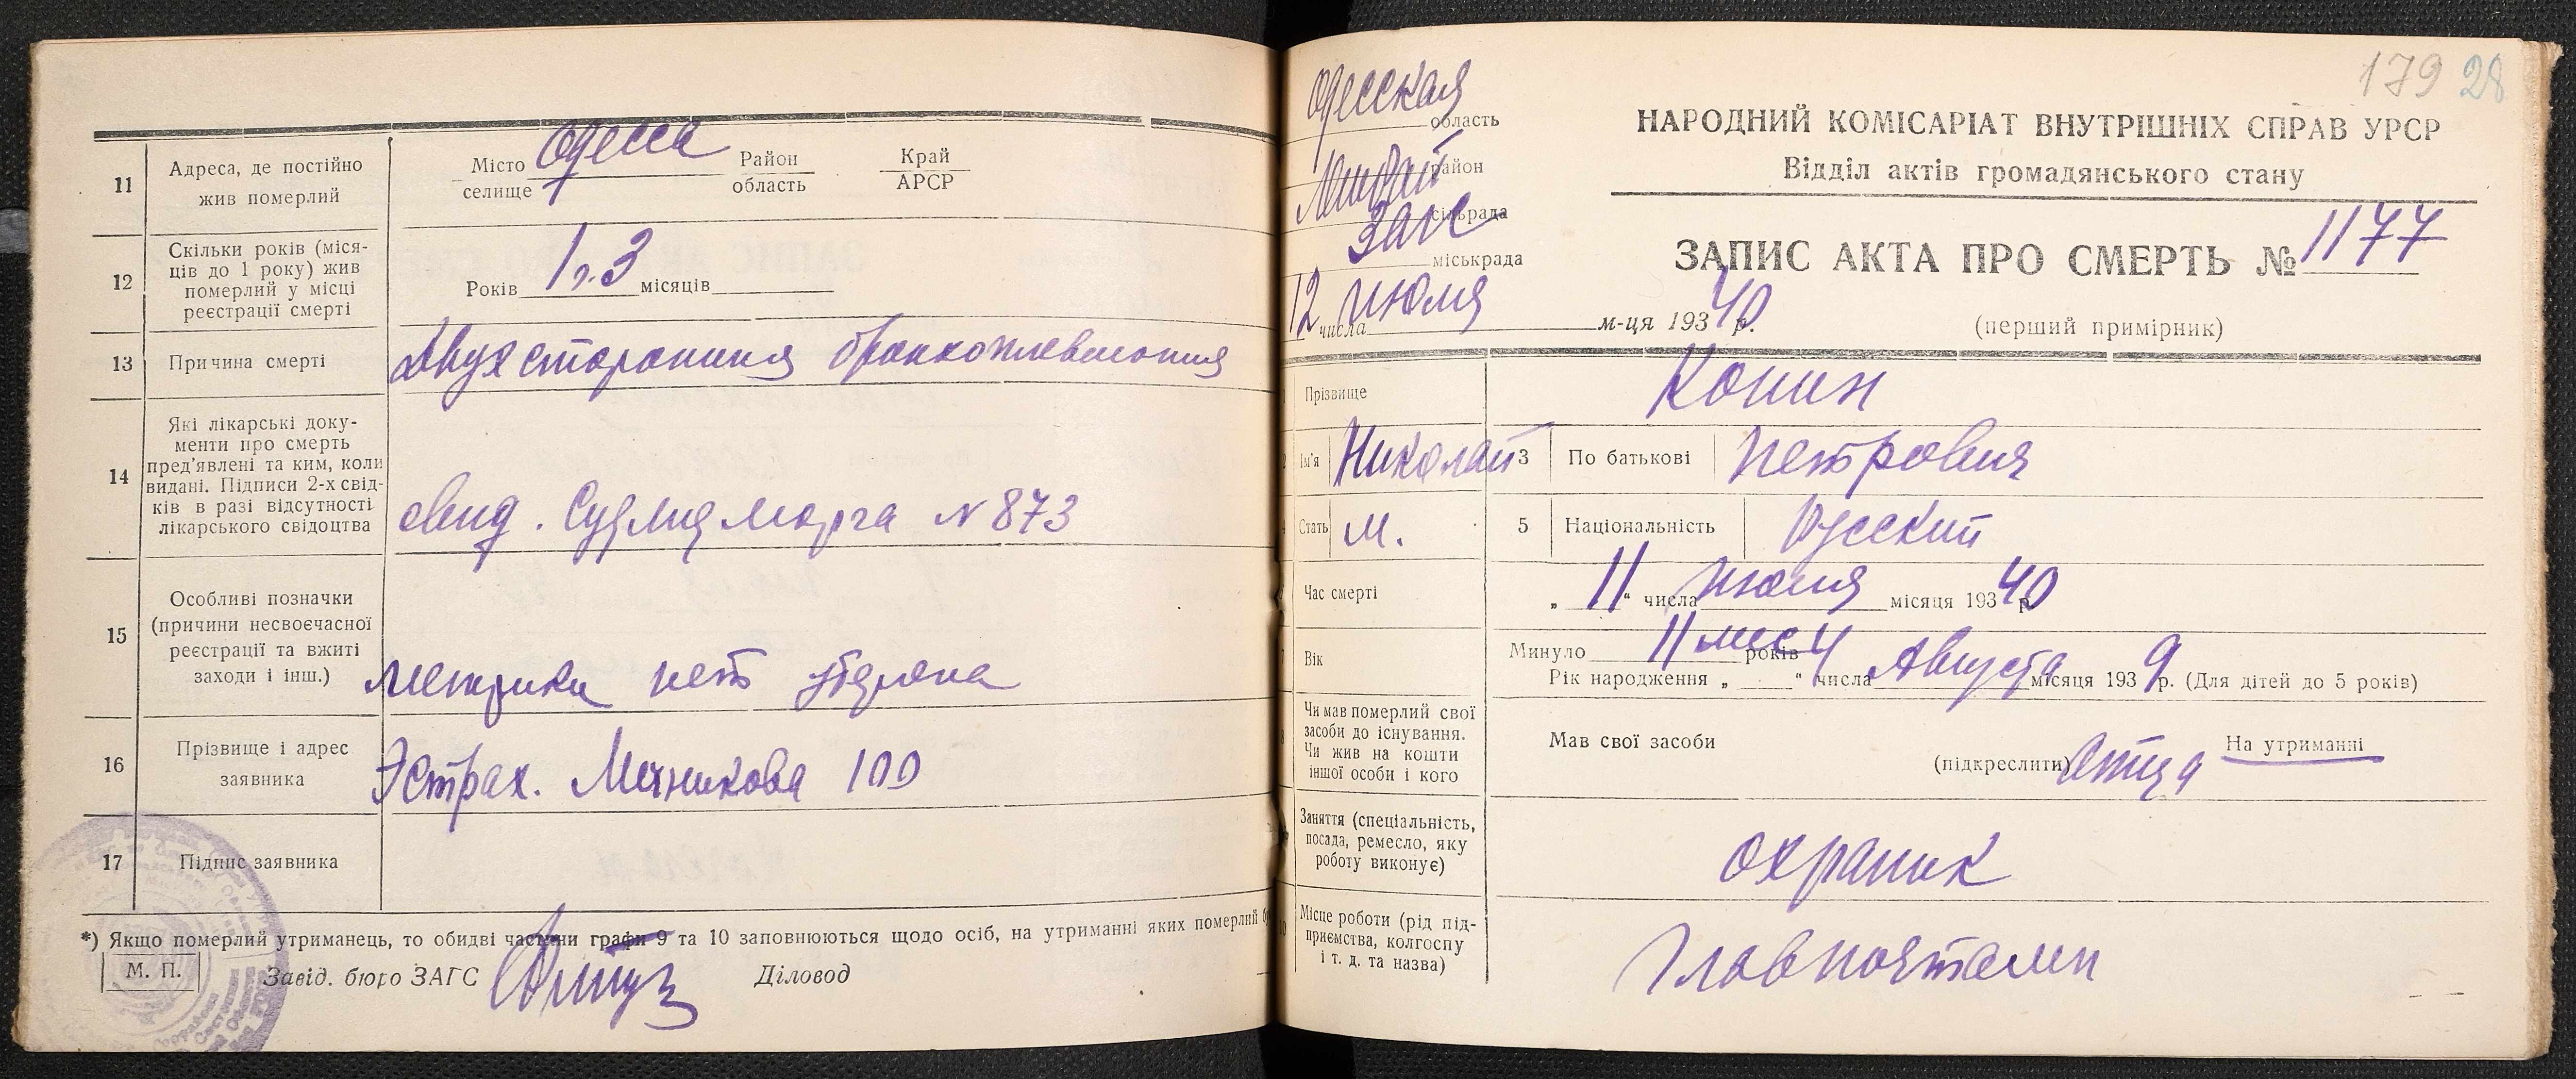 11
Адреса, де постійно
жив померлий
Місто Одесса Район Край
селище область АРСР
12
Скільки років (міся-
ців до 1 року) жив
померлий у місці
реєстрації смерті
Років 1 г. 3 місяців
13
Причина смерті
Двухсторонния бронхопневмония
14
Які лікарські доку-
менти про смерть
пред'явлені та ким, коли
видані. Підписи 2-х свід-
ків в разі відсутності
лікарського свідоцтва
свид. Суд мед морга № 873
15
Особливі позначки
(причини несвоєчасної
реєстрації та вжиті
заходи і інш.)
метрики нет утеряна
16
Прізвище і адрес
заявника
Мечникова 100
17
Підпис заявника
*) Якщо померлий утриманець, то обидві частини графи 9 та 10 заповнюються щодо осіб, на утриманні яких померлий
М. П.
Завід. бюро ЗАГС
Діловод
179 28
Одесская
область
район
сільрада
ЗАГС
міськрада
12 числа июля м-ця 193 40 р.
НАРОДНИЙ КОМІСАРІАТ ВНУТРІШНІХ СПРАВ УРСР
Відділ актів громадянського стану
ЗАПИС АКТА ПРО СМЕРТЬ № 1177
(перший примірник)
Прізвище Конин
Ім'я Николай 3 По батькові Петрович
Стать м. 5 Національність Русский
Час смерті „ 11 “ числа июля місяця 193 40 р.
Вік
Минуло 11 мес років
Рік народження „ 4 “ числа Августа місяця 193 9 р. (Для дітей до 5 років)
Чи мав померлий свої
засоби до існування.
Чи жив на кошти
іншої особи і кого
Мав свої засоби
(підкреслити)
На утриманні
отца
Заняття (спеціальність,
посада, ремесло, яку
роботу виконує)
охраник
10
Місце роботи (рід під-
приємства, колгоспу
і т. д. та назва)
Главпочтамп